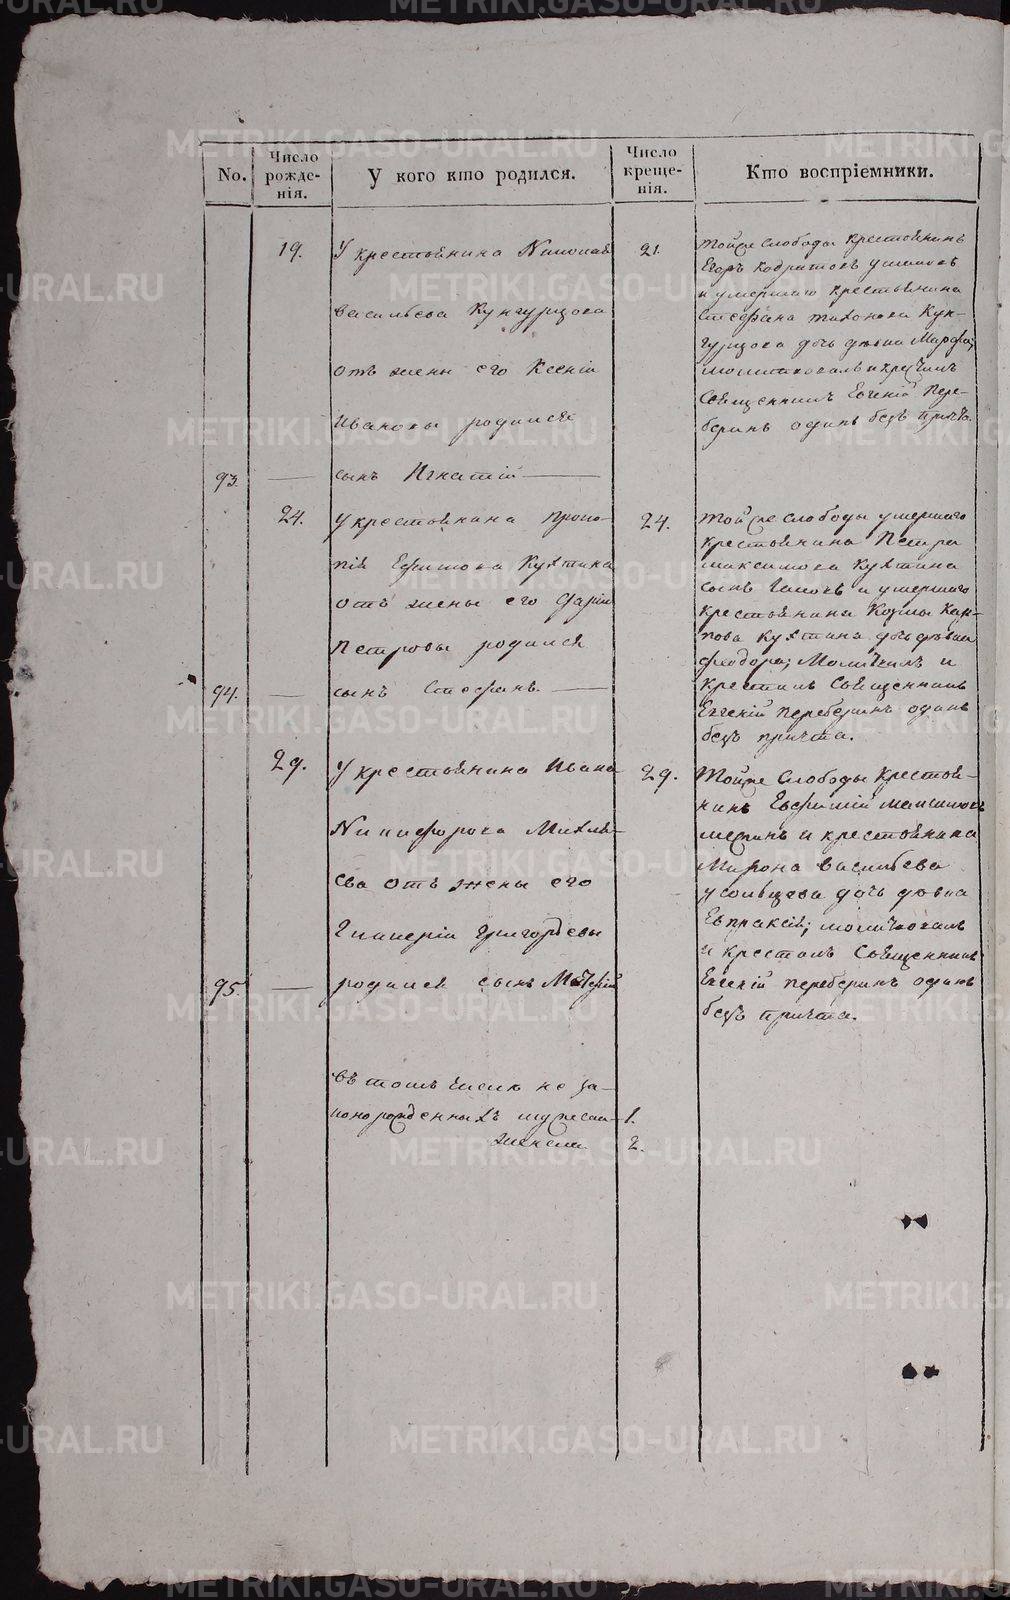 No.
Число рожде-нія.
У кого кто родился.
Число креще-нія.
Кто воспріемники.
19.
У крестьянина Николая
Васильева Кунгурцова
отъ жены его Ксеніи
Ивановы родился
93. — сынъ Игнатій —
21.
Тойже слободы крестьянинъ
Егоръ
и умершаго крестьянина
Стефана Тихонова Кун-
гурцова дочь девка Марфа;
молитвовалъ и крестилъ
Священникъ Евгеній Пере-
беринъ одинъ безъ причта.
24.
У крестьянина Проко-
пія Ефимова Кухтина
отъ жены его Дарьи
Петровы родился
94. — сынъ Стефанъ. —
24.
Тойже слободы умершаго
крестьянина Петра
Максимова Кухтина
сынъ и умершаго
крестьянина Козмы Кар-
пова Кухтина дочь девка
Феодора; Молитвилъ и
крестилъ Священникъ
Евгеній Переберинъ одинъ
безъ причта.
29.
У крестьянина Ивана
Никифорова Михле-
ева отъ жены его
Гликеріи Григорьевы
95. — родился сынъ
29.
Тойже Слободы Крестья-
нинъ Евфимій
и крестьянина
Мирона Васильева
Усольцева дочь девка
Евпраксія; молитвовалъ
и крестилъ Священникъ
Евгеній Переберинъ одинъ
безъ причта.
Въ томъ числе не за-
конорожденныхъ мужеска — 1.
женска 2.
METRIKI.GASO-URAL.RU